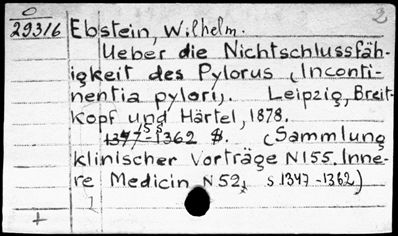 2
O
29316
Ebstein, Wilhelm.
Ueber die Nichtschlussfäh-
igkeit des Pylorus (Inconti-
nentia pylori). Leipzig, Breit-
kopf und Härtel, 1878.
1347-1362 S. (Sammlung
klinischer Vorträge N155. Inne-
re Medicin N52, s 1347-1362)